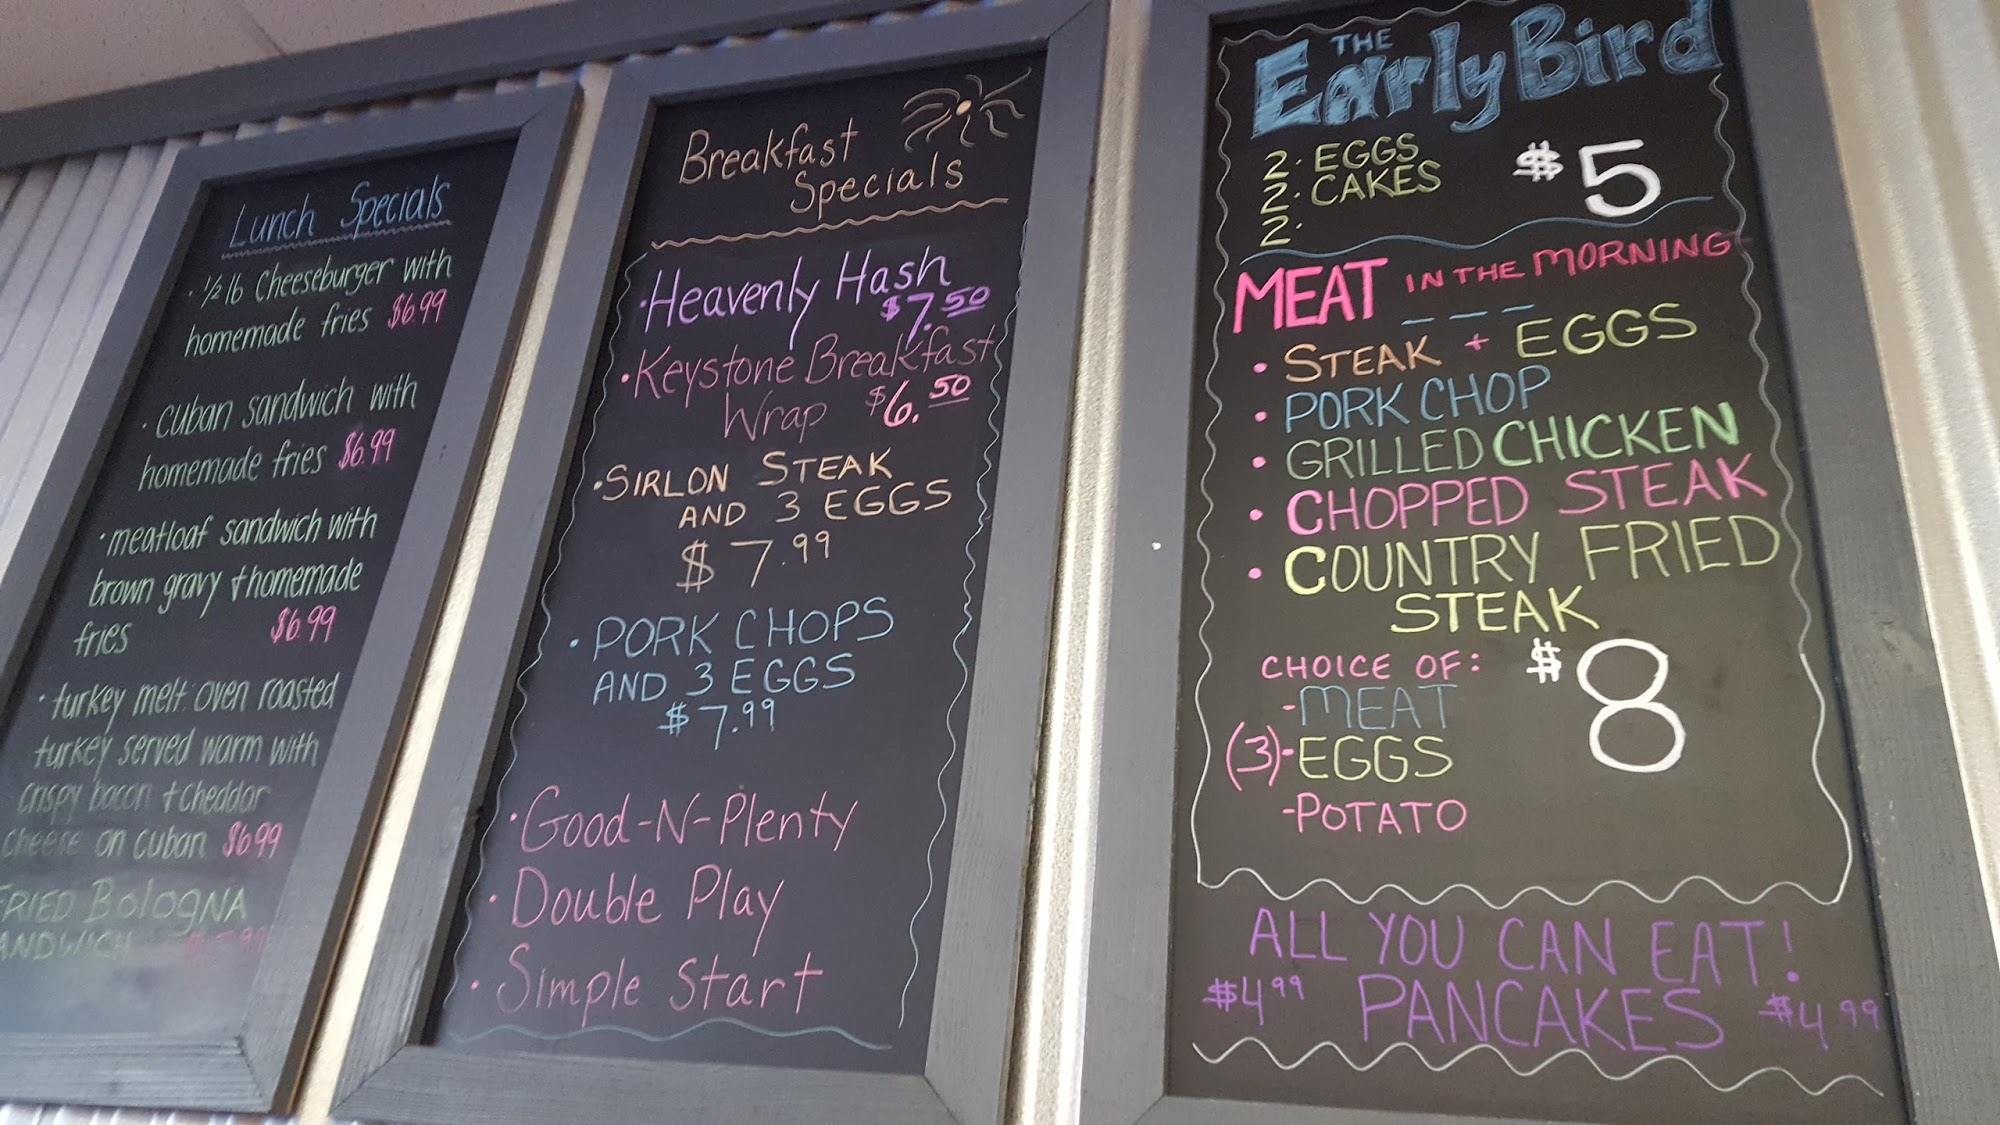 Lunch Specials
· 1/2 lb Cheeseburger with
homemade fries $6.99
· cuban sandwich with
homemade fries $6.99
· meatloaf sandwich with
brown gravy + homemade
fries $6.99
· turkey melt: oven roasted
turkey served warm with
crispy bacon + cheddar
cheese on cuban $6.99
FRIED BOlOGNA
Breakfast
Specials
· Heavenly Hash
$7.50
· Keystone Breakfast
Wrap $6.50
· SIRLON STEAK
AND 3 EGGS
$7.99
· PORK CHOPS
AND 3 EGGS
$7.99
· Good-N-Plenty
· Double Play
· Simple Start
THE
Early Bird
2· EGGS
2· CAKES $5
2·
MEAT IN THE MORNING
· STEAK + EGGS
· PORK CHOP
· GRILLED CHICKEN
· CHOPPED STEAK
· COUNTRY FRIED
STEAK
CHOICE OF: $8
-MEAT
(3)-EGGS
-POTATO
ALL YOU CAN EAT!
$4.99 PANCAKES $4.99